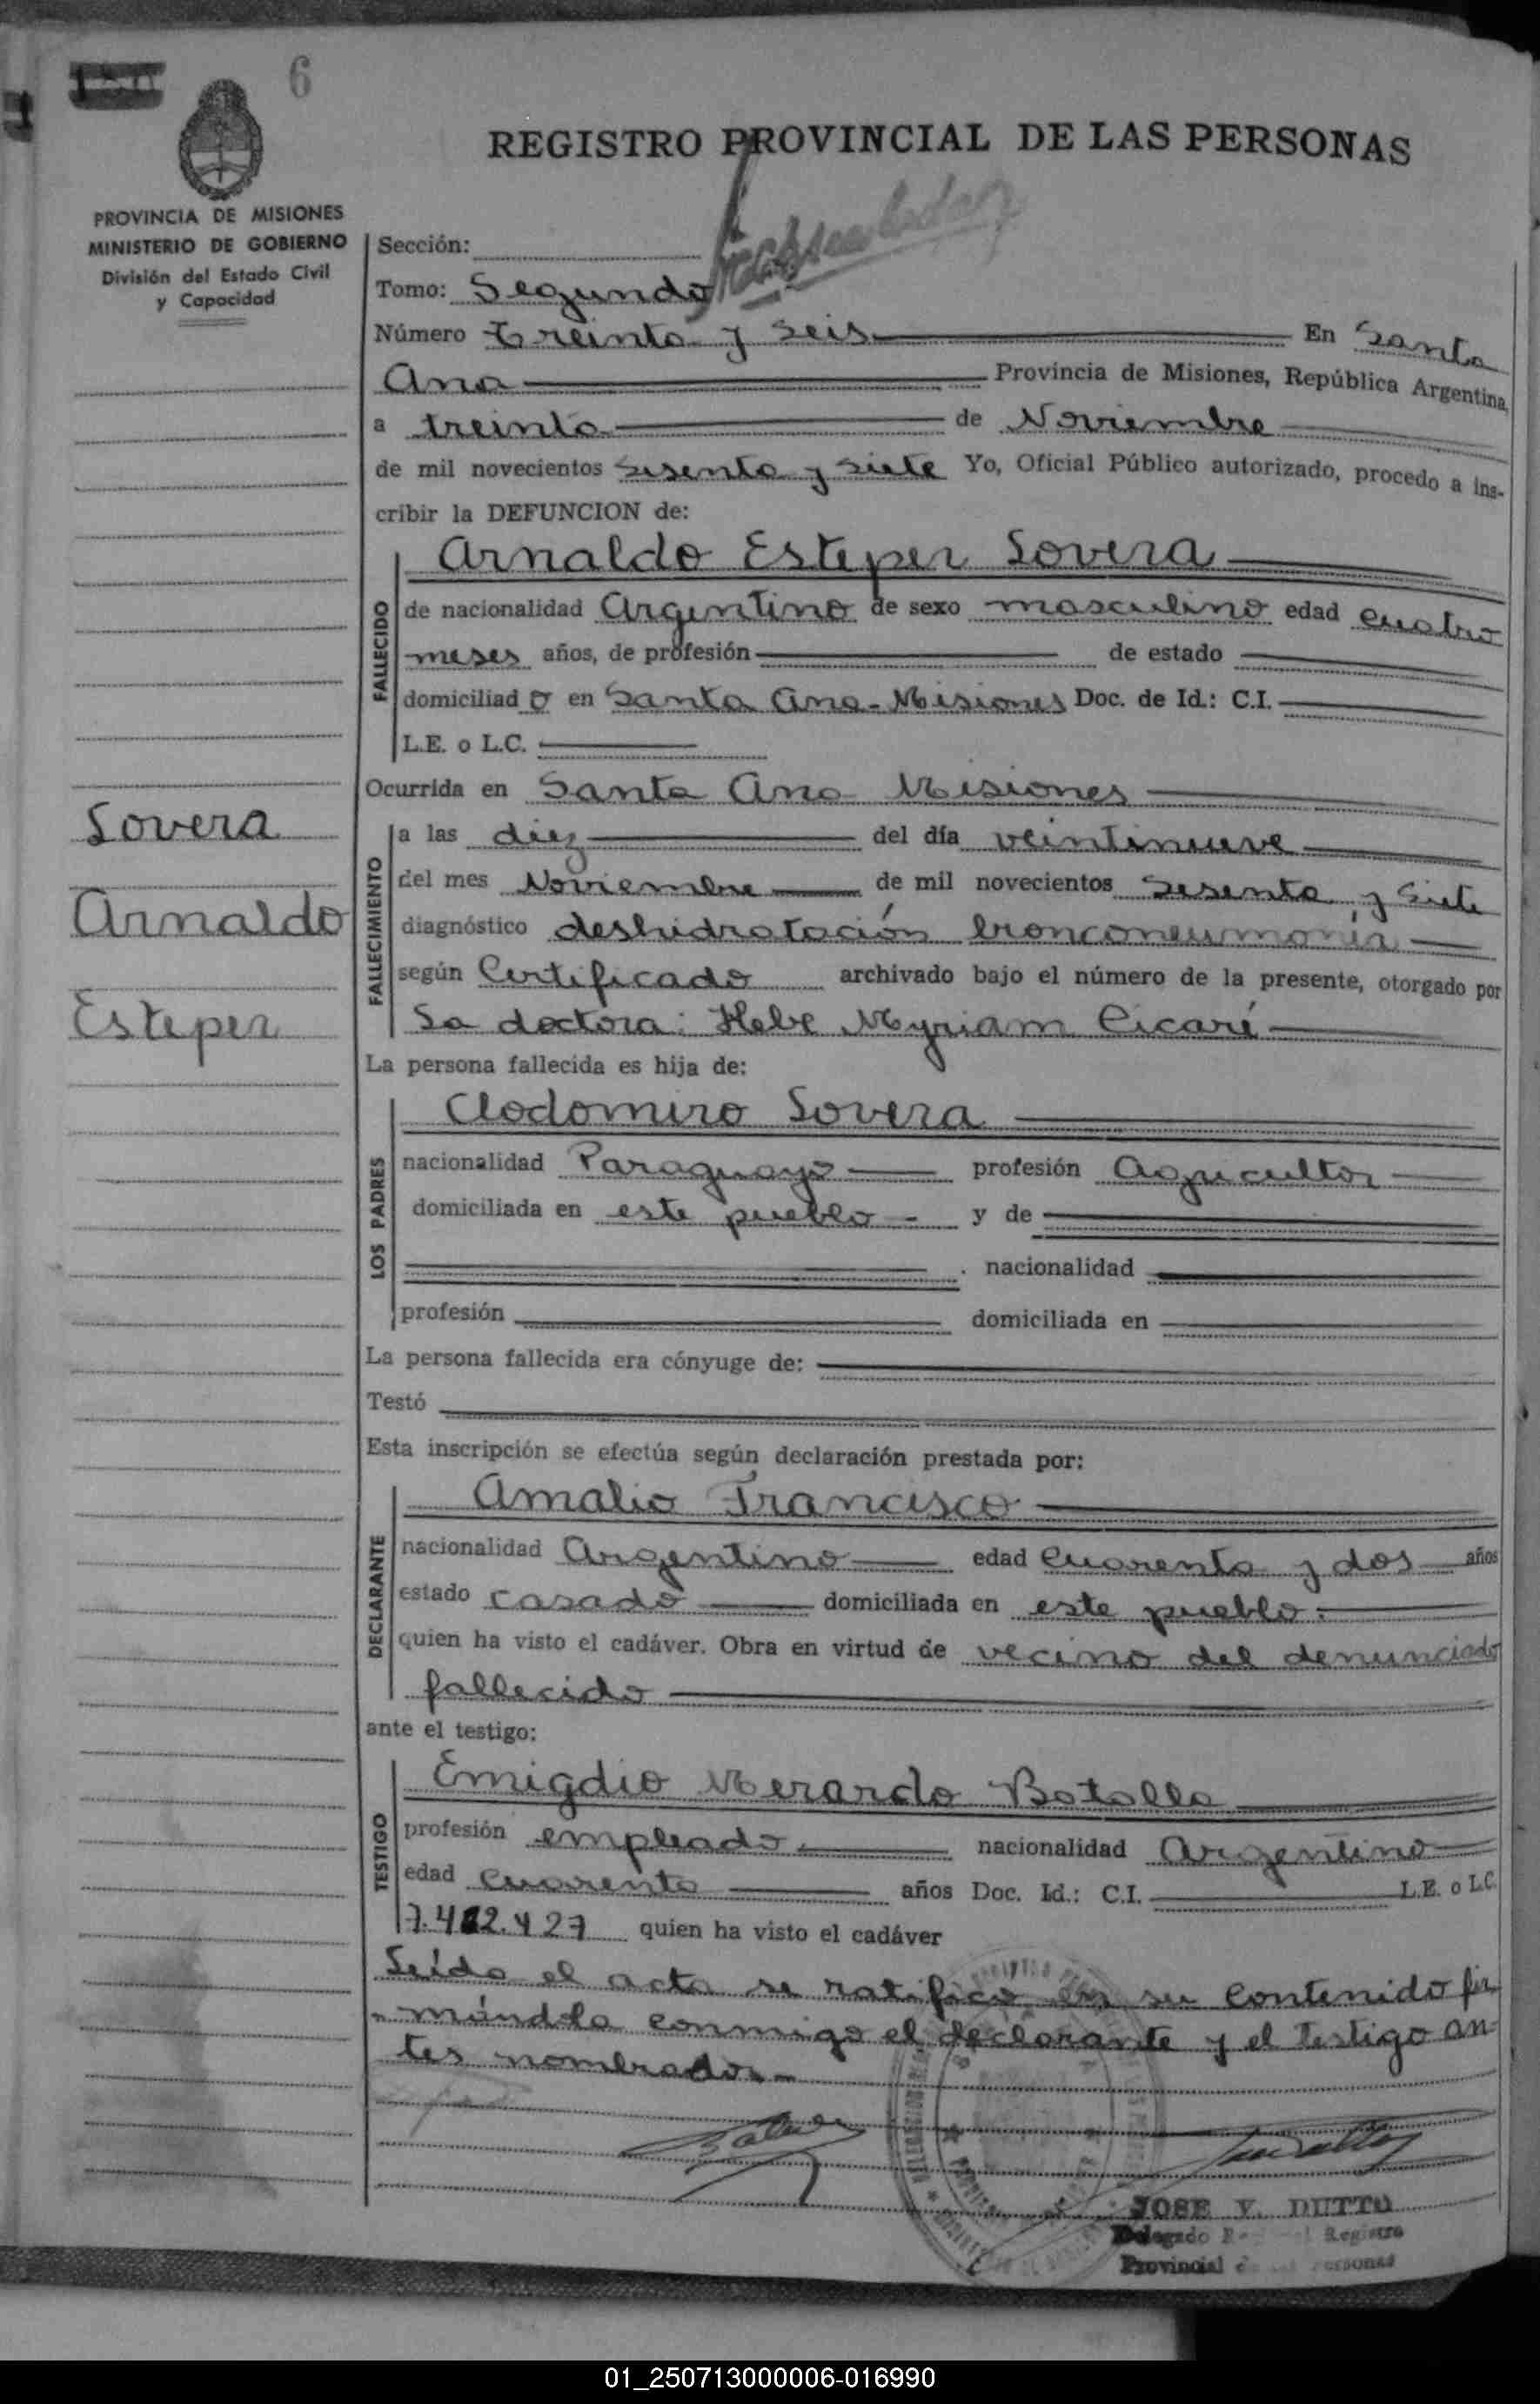 6
REGISTRO PROVINCIAL DE LAS PERSONAS
PROVINCIA DE MISIONES
MINISTERIO DE GOBIERNO
División del Estado Civil
y Capacidad
Sección:
Tomo: Segundo
Número treinta y seis En Santa
Ana Provincia de Misiones, República Argentina,
a treinta de Noviembre
de mil novecientos sesenta y siete Yo, Oficial Público autorizado, procedo a ins-
cribir la DEFUNCION de:
FALLECIDO
Arnaldo Esteper Lovera
de nacionalidad Argentino de sexo masculino edad cuatro
meses años, de profesión de estado
domiciliad o en Santa Ana - Misiones Doc. de Id.: C.I.
L.E. o L.C.
Ocurrida en Santa Ana Misiones
Lovera
Arnaldo
Esteper
FALLECIMIENTO
a las diez del día veintinueve
del mes Noviembre de mil novecientos sesenta y siete
diagnóstico deshidratación bronconeumonía
según Certificado archivado bajo el número de la presente, otorgado por
La doctora: Hebe Myriam Cicaré
La persona fallecida es hija de:
LOS PADRES
Clodomiro Lovera
nacionalidad Paraguayo profesión Agricultor
domiciliada en este pueblo - y de
nacionalidad
profesión domiciliada en
La persona fallecida era cónyuge de:
Testó
Esta inscripción se efectúa según declaración prestada por:
DECLARANTE
Amalio Francisco
nacionalidad Argentino edad cuarenta y dos años
estado casado domiciliada en este pueblo.
quien ha visto el cadáver. Obra en virtud de vecino del denunciado
fallecido
ante el testigo:
TESTIGO
Emigdio Merardo Botello
profesión empleado nacionalidad Argentino
edad cuarenta años Doc. Id.: C.I. L.E. o L.C.
7.482.427 quien ha visto el cadáver
Leído el acta se ratifico en su contenido fir
mándola conmigo el declarante y el testigo an-
tes nombrados.-
JOSE V. DUTTO
Delegado Registro
Provincial
01_250713000006-016990